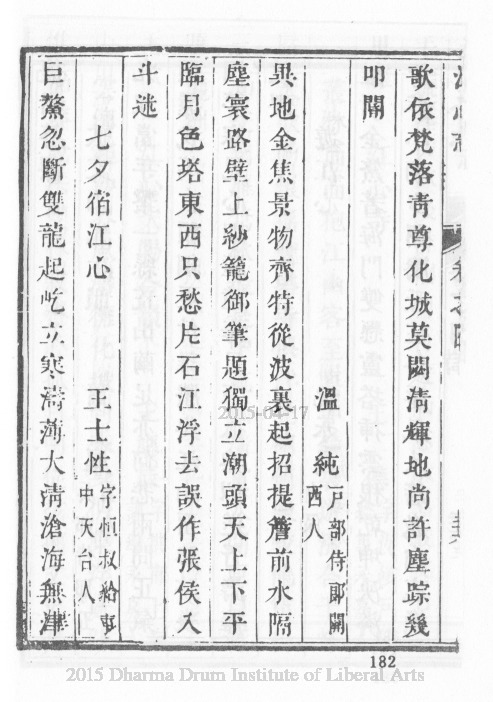 歌依梵落青尊化城莫閟清輝地尚許塵踪幾
叩關
溫純 戶部侍郎關西人
異地金焦景物齊特從波裏起招提簷前水隔
塵寰路壁上紗籠御筆題獨立潮頭天上下平
臨月色塔東西只愁片石江浮去誤作張侯入
斗迷
七夕宿江心 王士性 字恒叔給事中天台人
巨鰲忽斷雙龍起屹立寒濤薄大清滄海無津
182
2015-04-17
2015 Dharma Drum Institute of Liberal Arts